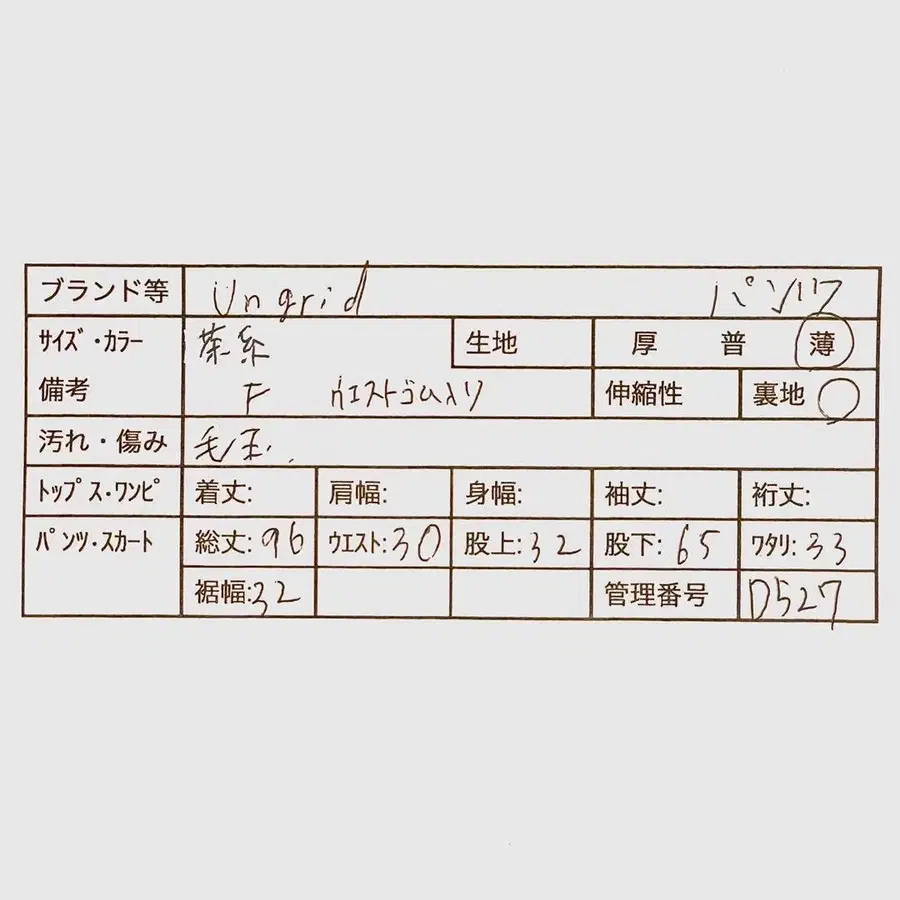 ブランド等 Ungrid パンツ
サイズ・カラー 茶系 生地 厚 普 薄
備考 F ウエストゴム入り 伸縮性 裏地 ○
汚れ・傷み 毛玉.
トップス・ワンピ 着丈: 肩幅: 身幅: 袖丈: 裄丈:
パンツ・スカート 総丈:96 ウエスト:30 股上:32 股下:65 ワタリ:33
裾幅:32 管理番号 D527